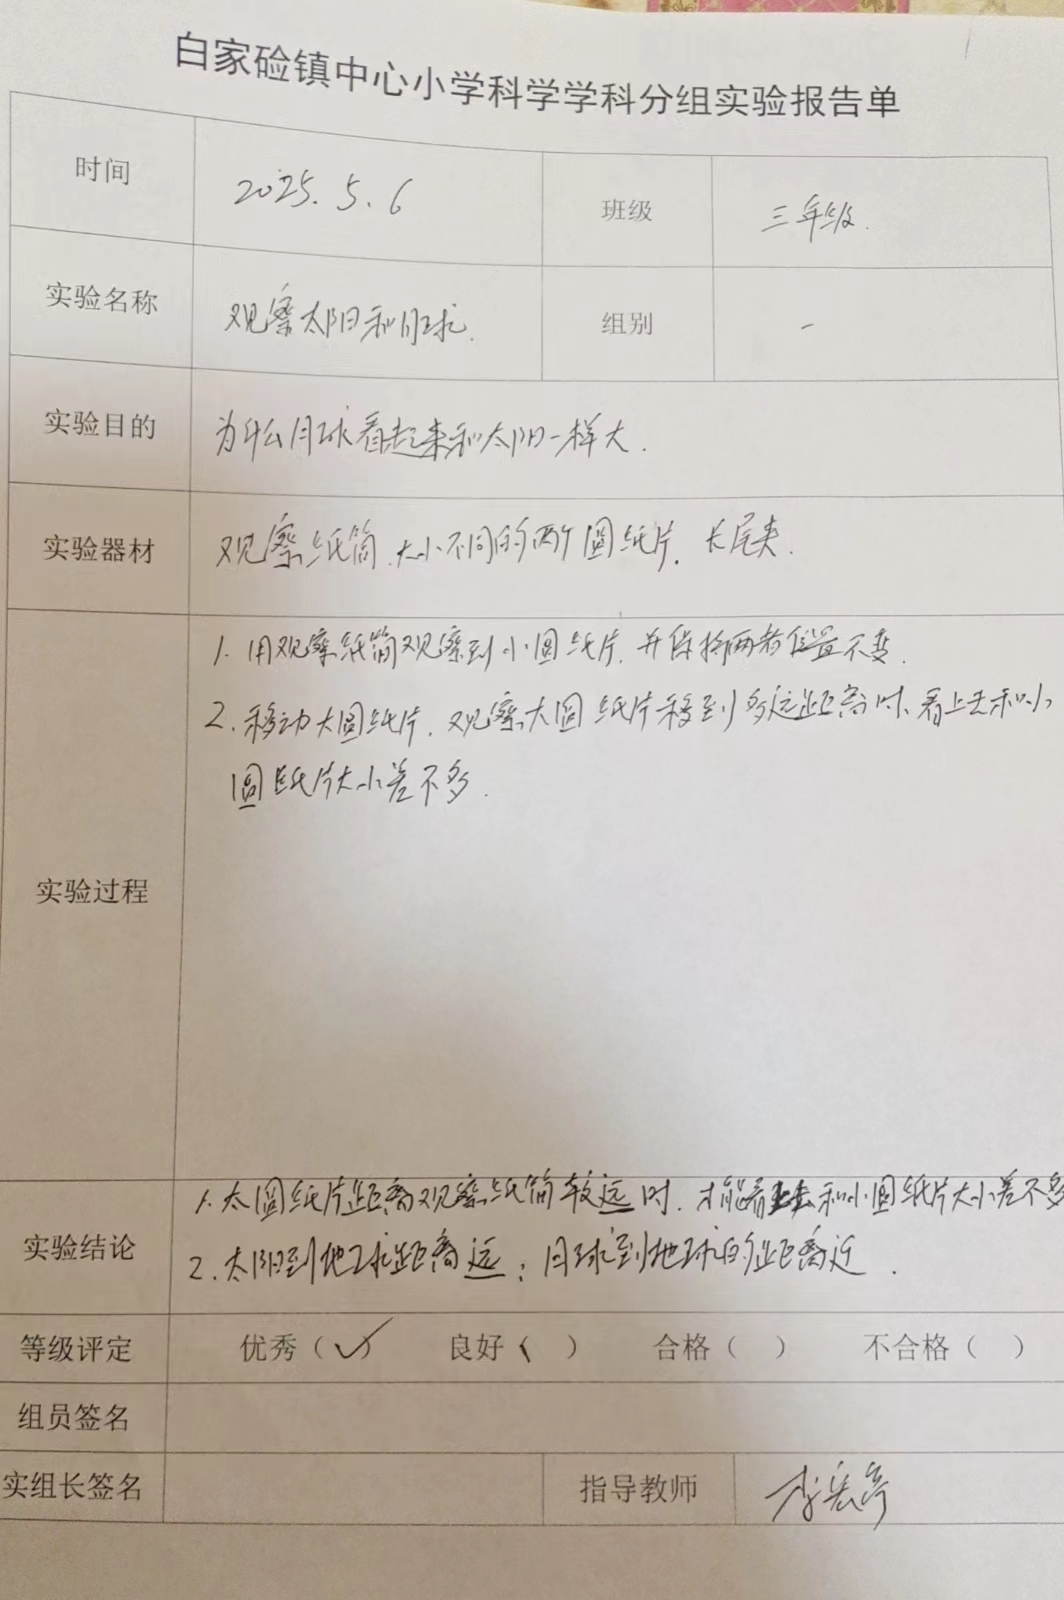 白家硷镇中心小学科学学科分组实验报告单
时间 2025.5.6 班级 三年级.
实验名称 观察太阳和月球. 组别 一
实验目的 为什么月球看起来和太阳一样大.
实验器材 观察纸筒.大小不同的两个圆纸片.长尾夹.
实验过程
1.用观察纸筒观察到小圆纸片.并保持两者位置不变.
2.移动大圆纸片.观察大圆纸片移到多远距离时、看上去和小
圆纸片大小差不多.
实验结论
1.大圆纸片距离观察纸筒较远时.才能看上去和小圆纸片大小差不多
2.太阳到地球距离远;月球到地球的距离近.
等级评定 优秀(✓) 良好( ) 合格( ) 不合格( )
组员签名
实组长签名 指导教师